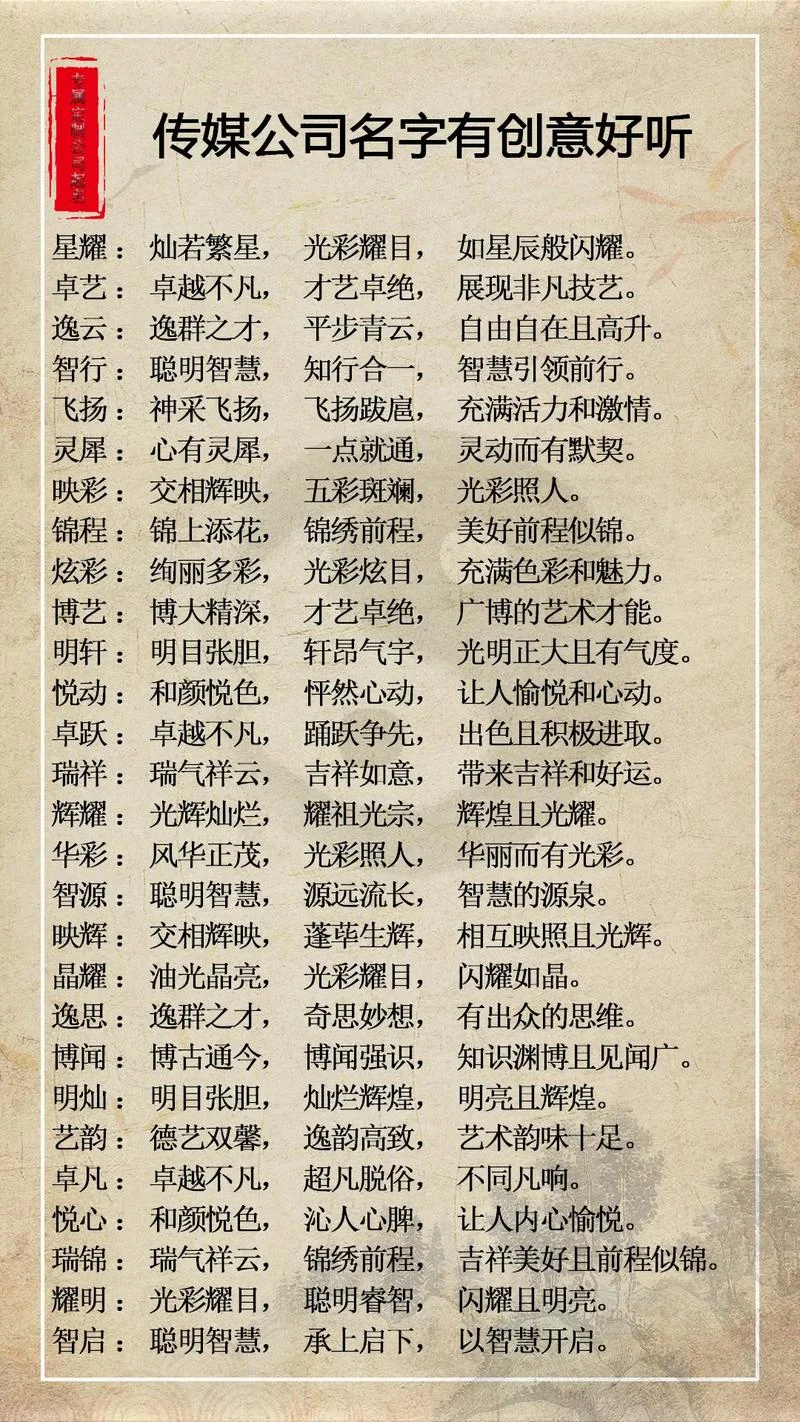 传媒公司名字有创意好听
星耀：灿若繁星，光彩耀目，如星辰般闪耀。
卓艺：卓越不凡，才艺卓绝，展现非凡技艺。
逸云：逸群之才，平步青云，自由自在且高升。
智行：聪明智慧，知行合一，智慧引领前行。
飞扬：神采飞扬，飞扬跋扈，充满活力和激情。
灵犀：心有灵犀，一点就通，灵动而有默契。
映彩：交相辉映，五彩斑斓，光彩照人。
锦程：锦上添花，锦绣前程，美好前程似锦。
炫彩：绚丽多彩，光彩炫目，充满色彩和魅力。
博艺：博大精深，才艺卓绝，广博的艺术才能。
明轩：明目张胆，轩昂气宇，光明正大且有气度。
悦动：和颜悦色，怦然心动，让人愉悦和心动。
卓跃：卓越不凡，踊跃争先，出色且积极进取。
瑞祥：瑞气祥云，吉祥如意，带来吉祥和好运。
辉耀：光辉灿烂，耀祖光宗，辉煌且光耀。
华彩：风华正茂，光彩照人，华丽而有光彩。
智源：聪明智慧，源远流长，智慧的源泉。
映辉：交相辉映，蓬荜生辉，相互映照且光辉。
晶耀：油光晶亮，光彩耀目，闪耀如晶。
逸思：逸群之才，奇思妙想，有出众的思维。
博闻：博古通今，博闻强识，知识渊博且见闻广。
明灿：明目张胆，灿烂辉煌，明亮且辉煌。
艺韵：德艺双馨，逸韵高致，艺术韵味十足。
卓凡：卓越不凡，超凡脱俗，不同凡响。
悦心：和颜悦色，沁人心脾，让人内心愉悦。
瑞锦：瑞气祥云，锦绣前程，吉祥美好且前程似锦。
耀明：光彩耀目，聪明睿智，闪耀且明亮。
智启：聪明智慧，承上启下，以智慧开启。